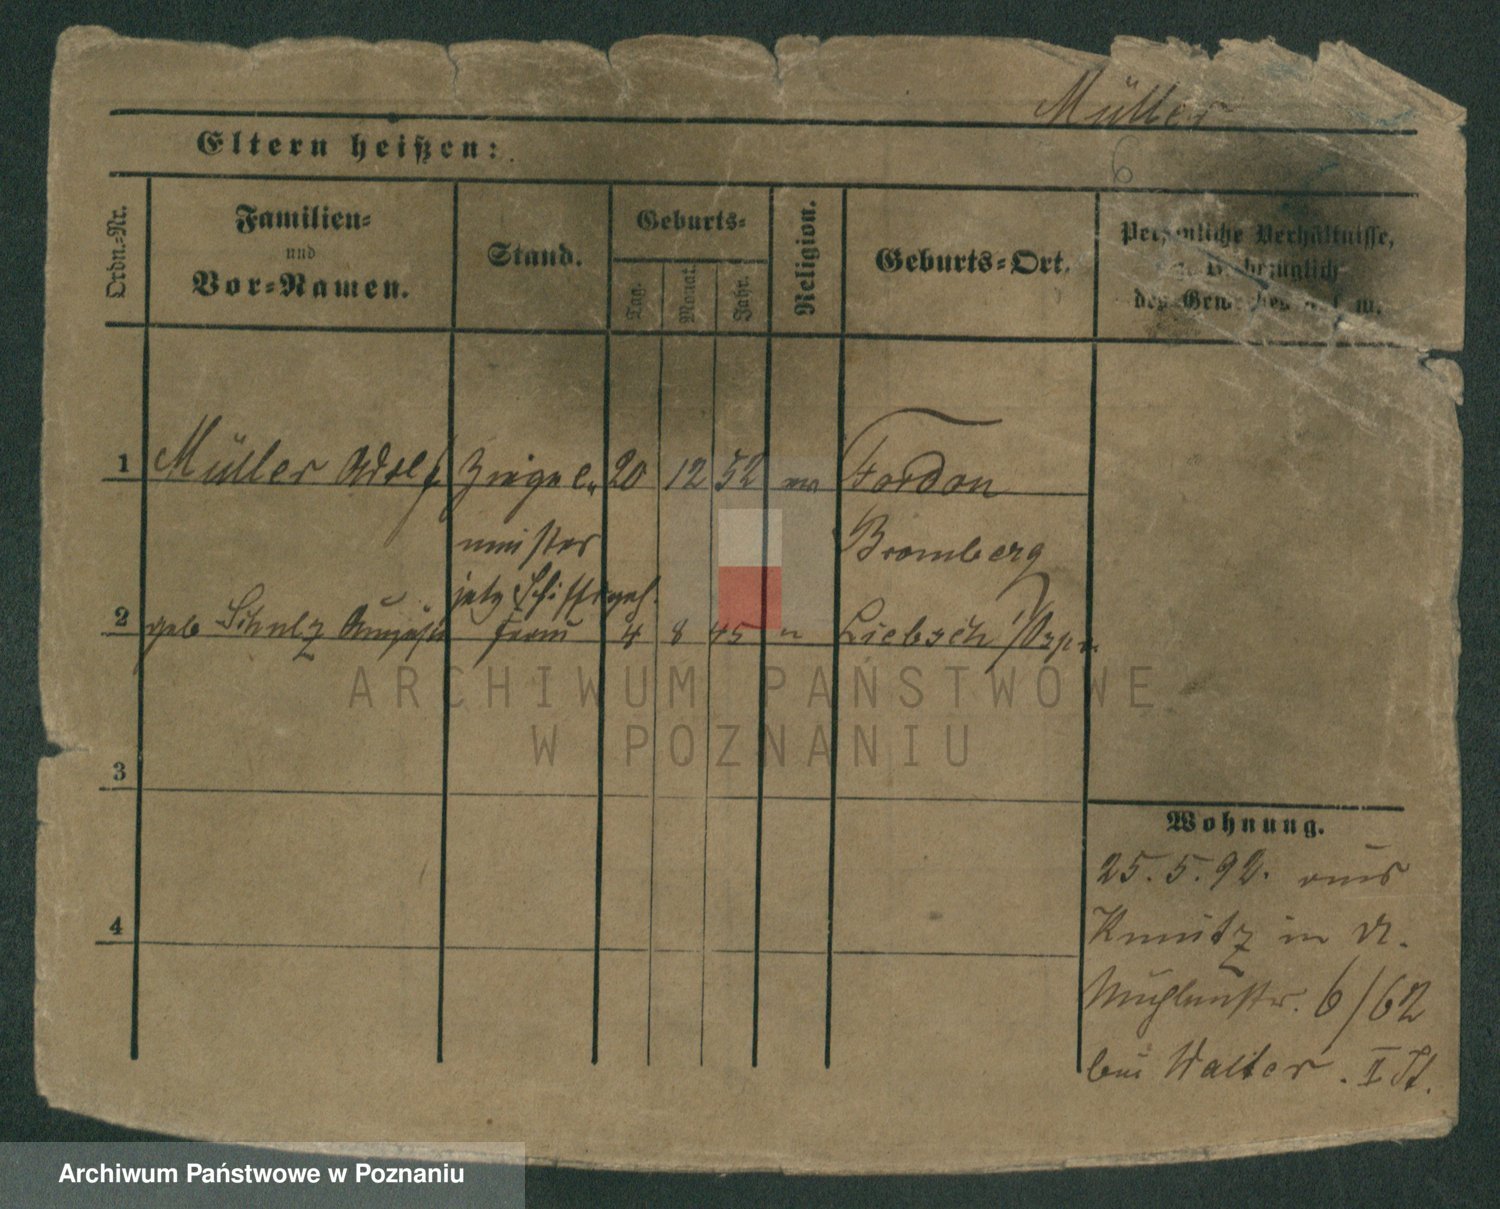 Müller
6
Eltern heißen:
Ordn.-Nr.
Familien-
und
Vor-Namen.
Stand.
Geburts-
Tag.
Monat.
Jahr.
Religion.
Geburts-Ort.
Persönliche Verhältnisse,
bezüglich
des Gewerbes u. s. w.
1 Müller Adolf Ziegel- 20 12 52 ev Fordon
meister Bromberg
jetzt
2 geb Schulz Auguste Frau 4 8 45 " Liebsch
3
4
Wohnung.
25.5.92. aus
in
Mühlenstr. 6/62
bei Walter. II St.
ARCHIWUM PAŃSTWOWE
W POZNANIU
Archiwum Państwowe w Poznaniu